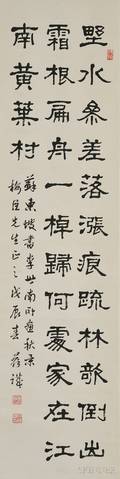 野水參差落漲痕疏林欹倒出
霜根扁舟一棹歸何處家在江
南黃葉村
蘇東坡書李世南所畫秋景
梅臣先生正之戊辰春